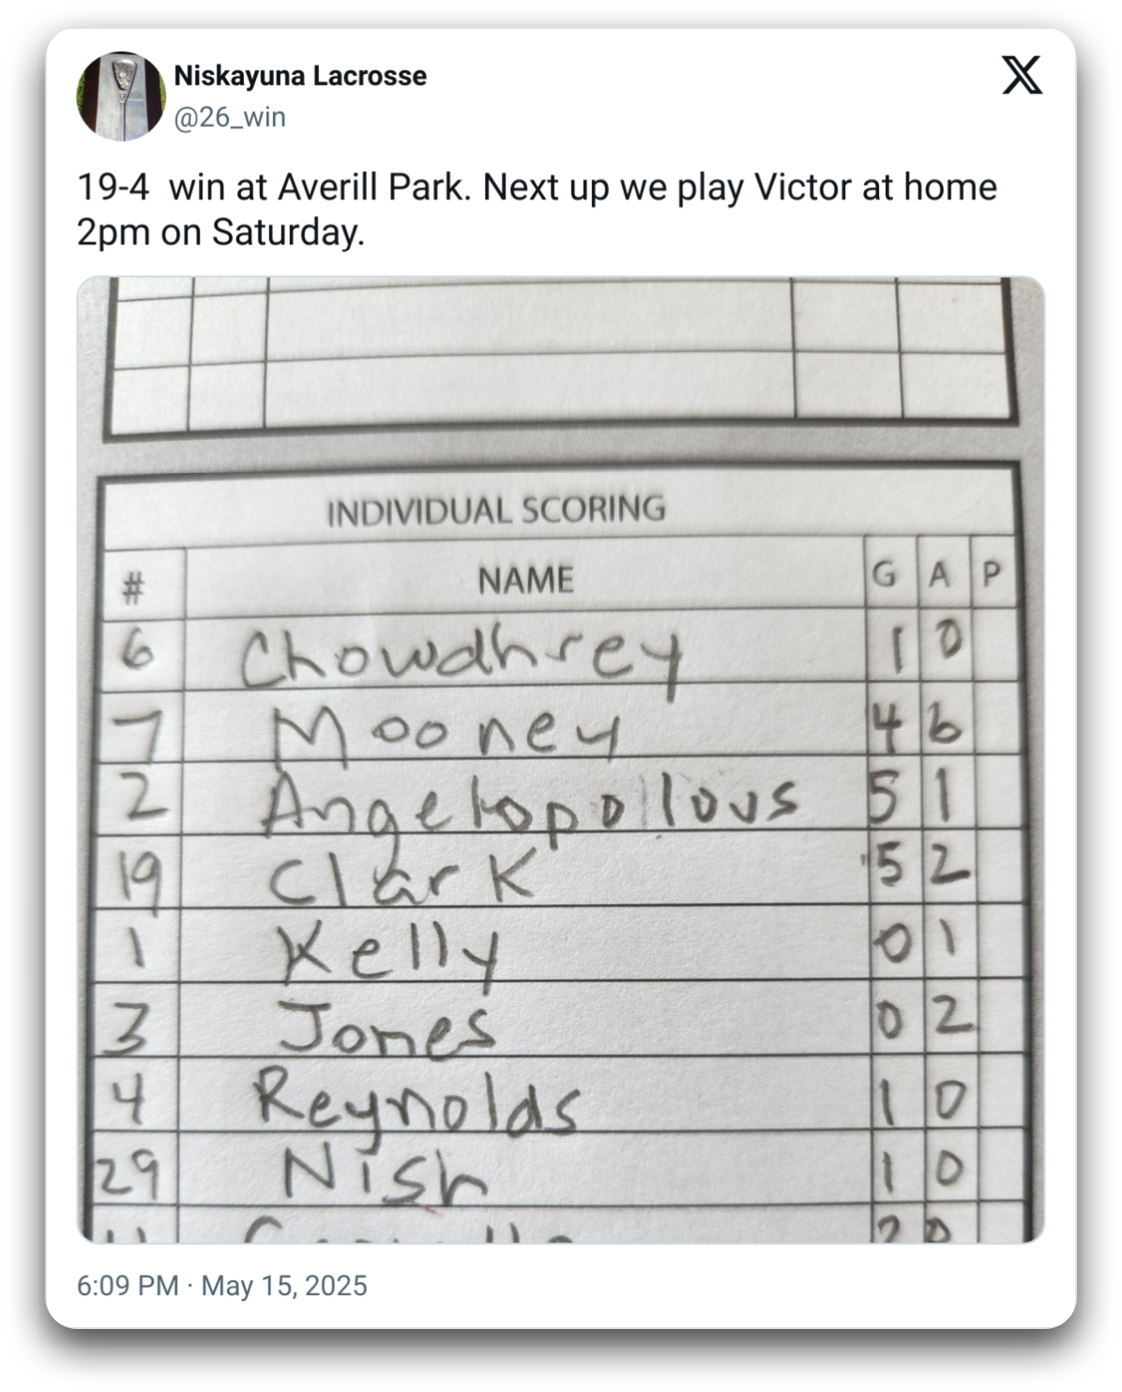 Niskayuna Lacrosse
@26_win
19-4 win at Averill Park. Next up we play Victor at home
2pm on Saturday.
INDIVIDUAL SCORING
# NAME G A P
6 Chowdhrey 1 0
7 Mooney 4 6
2 Angelopollous 5 1
19 Clark 5 2
1 Kelly 0 1
3 Jones 0 2
4 Reynolds 1 0
29 Nish 1 0
6:09 PM · May 15, 2025